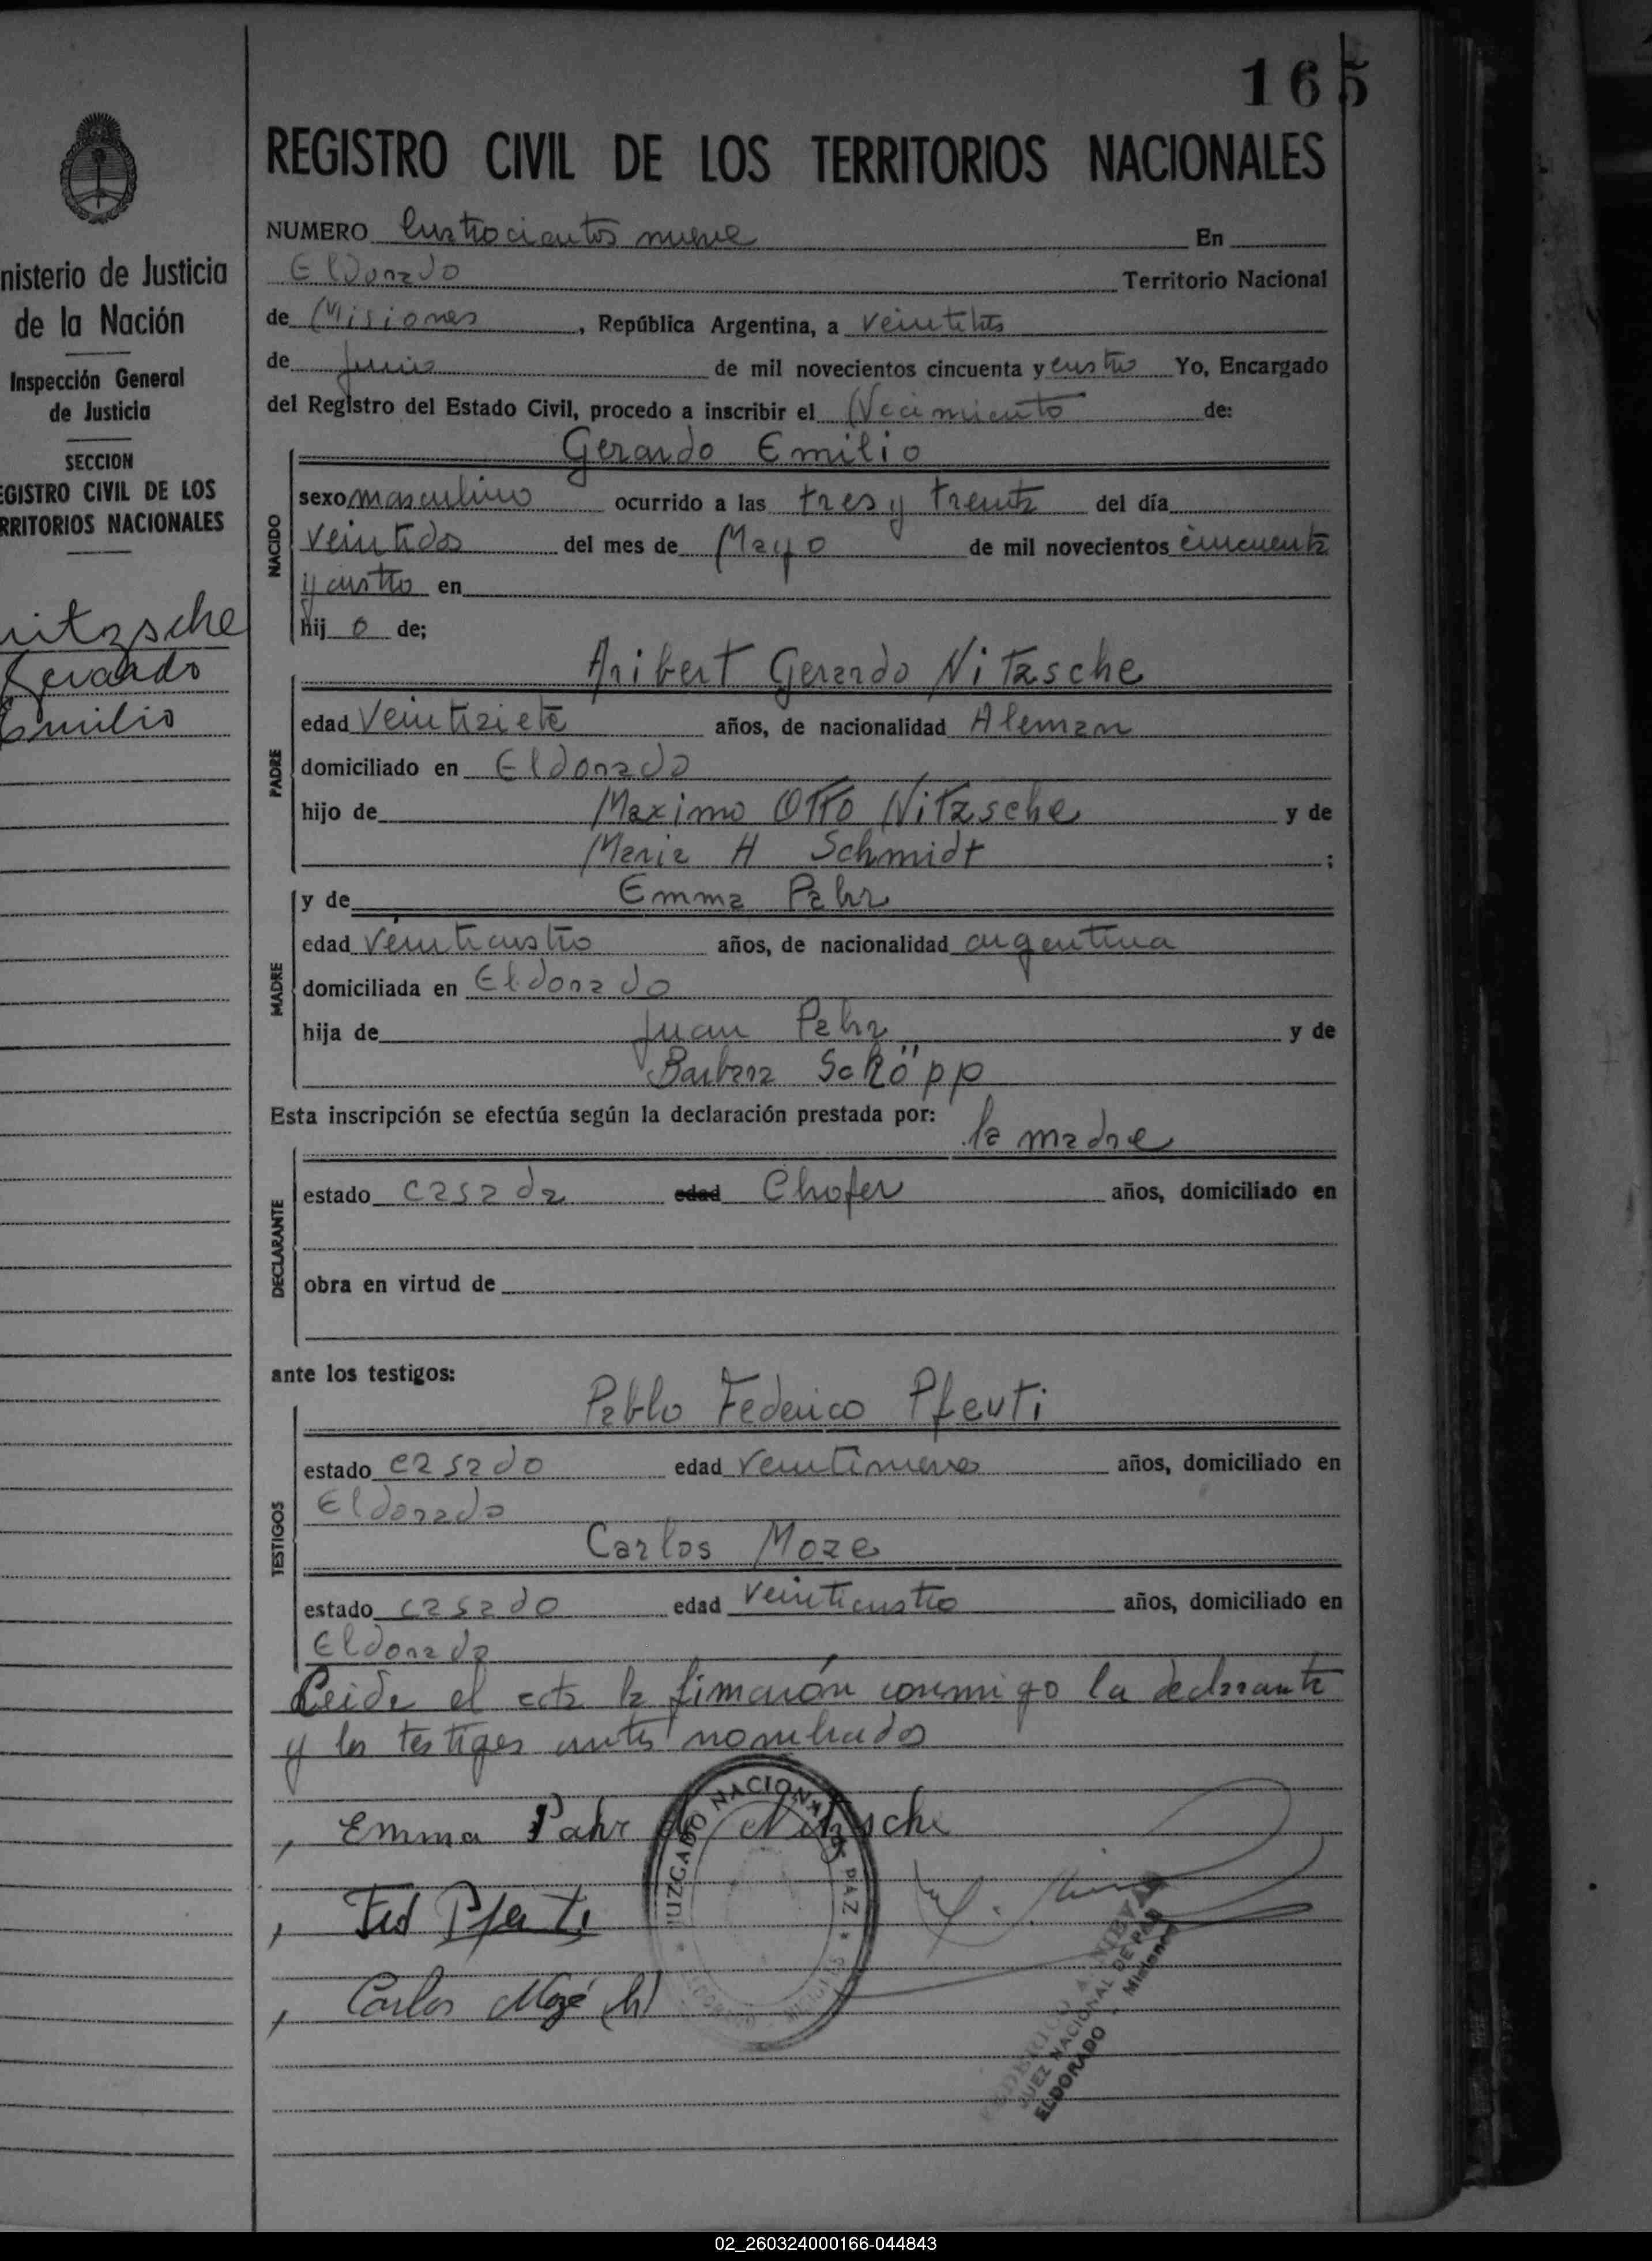 165
REGISTRO CIVIL DE LOS TERRITORIOS NACIONALES
nisterio de Justicia
de la Nación
Inspección General
de Justicia
SECCION
EGISTRO CIVIL DE LOS
RRITORIOS NACIONALES
itzsche
Gerardo
Emilio
NUMERO Cuatrocientos nueve En
Eldorado Territorio Nacional
de Misiones, República Argentina, a
de Junio de mil novecientos cincuenta y cuatro Yo, Encargado
del Registro del Estado Civil, procedo a inscribir el Nacimiento de:
Gerardo Emilio
NACIDO
sexo masculino ocurrido a las tres y treinta del día
veintidos del mes de Mayo de mil novecientos cincuenta
y cuatro en
hij o de;
Aribert Gerardo Nitzsche
PADRE
edad Veintisiete años, de nacionalidad Aleman
domiciliado en Eldorado
hijo de Maximo Otto Nitzsche y de
Maria H Schmidt ;
y de Emma Pahr
MADRE
edad Veinticuatro años, de nacionalidad argentina
domiciliada en Eldorado
hija de Juan Pahr y de
Barbara Schöpp
Esta inscripción se efectúa según la declaración prestada por:
la madre
DECLARANTE
estado casada edad Chofer años, domiciliado en
obra en virtud de
ante los testigos:
Pablo Federico Pfeuti
TESTIGOS
estado casado edad veintinueve años, domiciliado en
Eldorado
Carlos Moze
estado casado edad veinticuatro años, domiciliado en
Eldorado
Leida el acta la firmarón conmigo la declarante
y los testigos antes nombrados
Emma Pahr de Nitzsche
Fed Pfeuti
Carlos Mozé (h)
JUZGADO NACIONAL DE PAZ
JUEZ NACIONAL DE PAZ
ELDORADO - Misiones
02_260324000166-044843